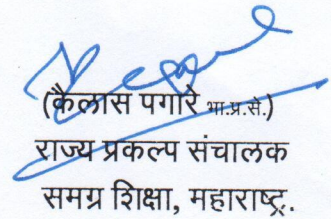 (कैलास पगारे भा.प्र.से.)
राज्य प्रकल्प संचालक
समग्र शिक्षा, महाराष्ट्र.